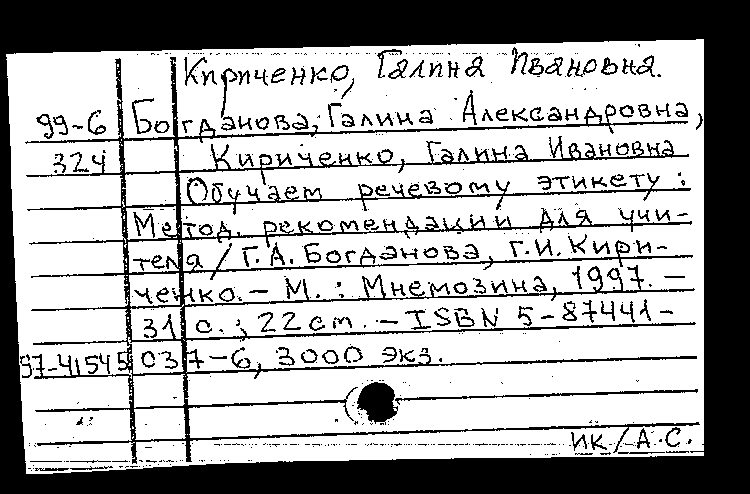 Кириченко, Галина Ивановна.
99-6 Богданова, Галина Александровна,
324 Кириченко, Галина Ивановна
Обучаем речевому этикету :
Метод. рекомендации для учи-
теля / Г. А. Богданова, Г. И. Кири-
ченко. – М. : Мнемозина, 1997. –
31 с. ; 22 cm. – ISBN 5-87441-
97-41545 037-6, 3000 экз.
ИК/А.С.